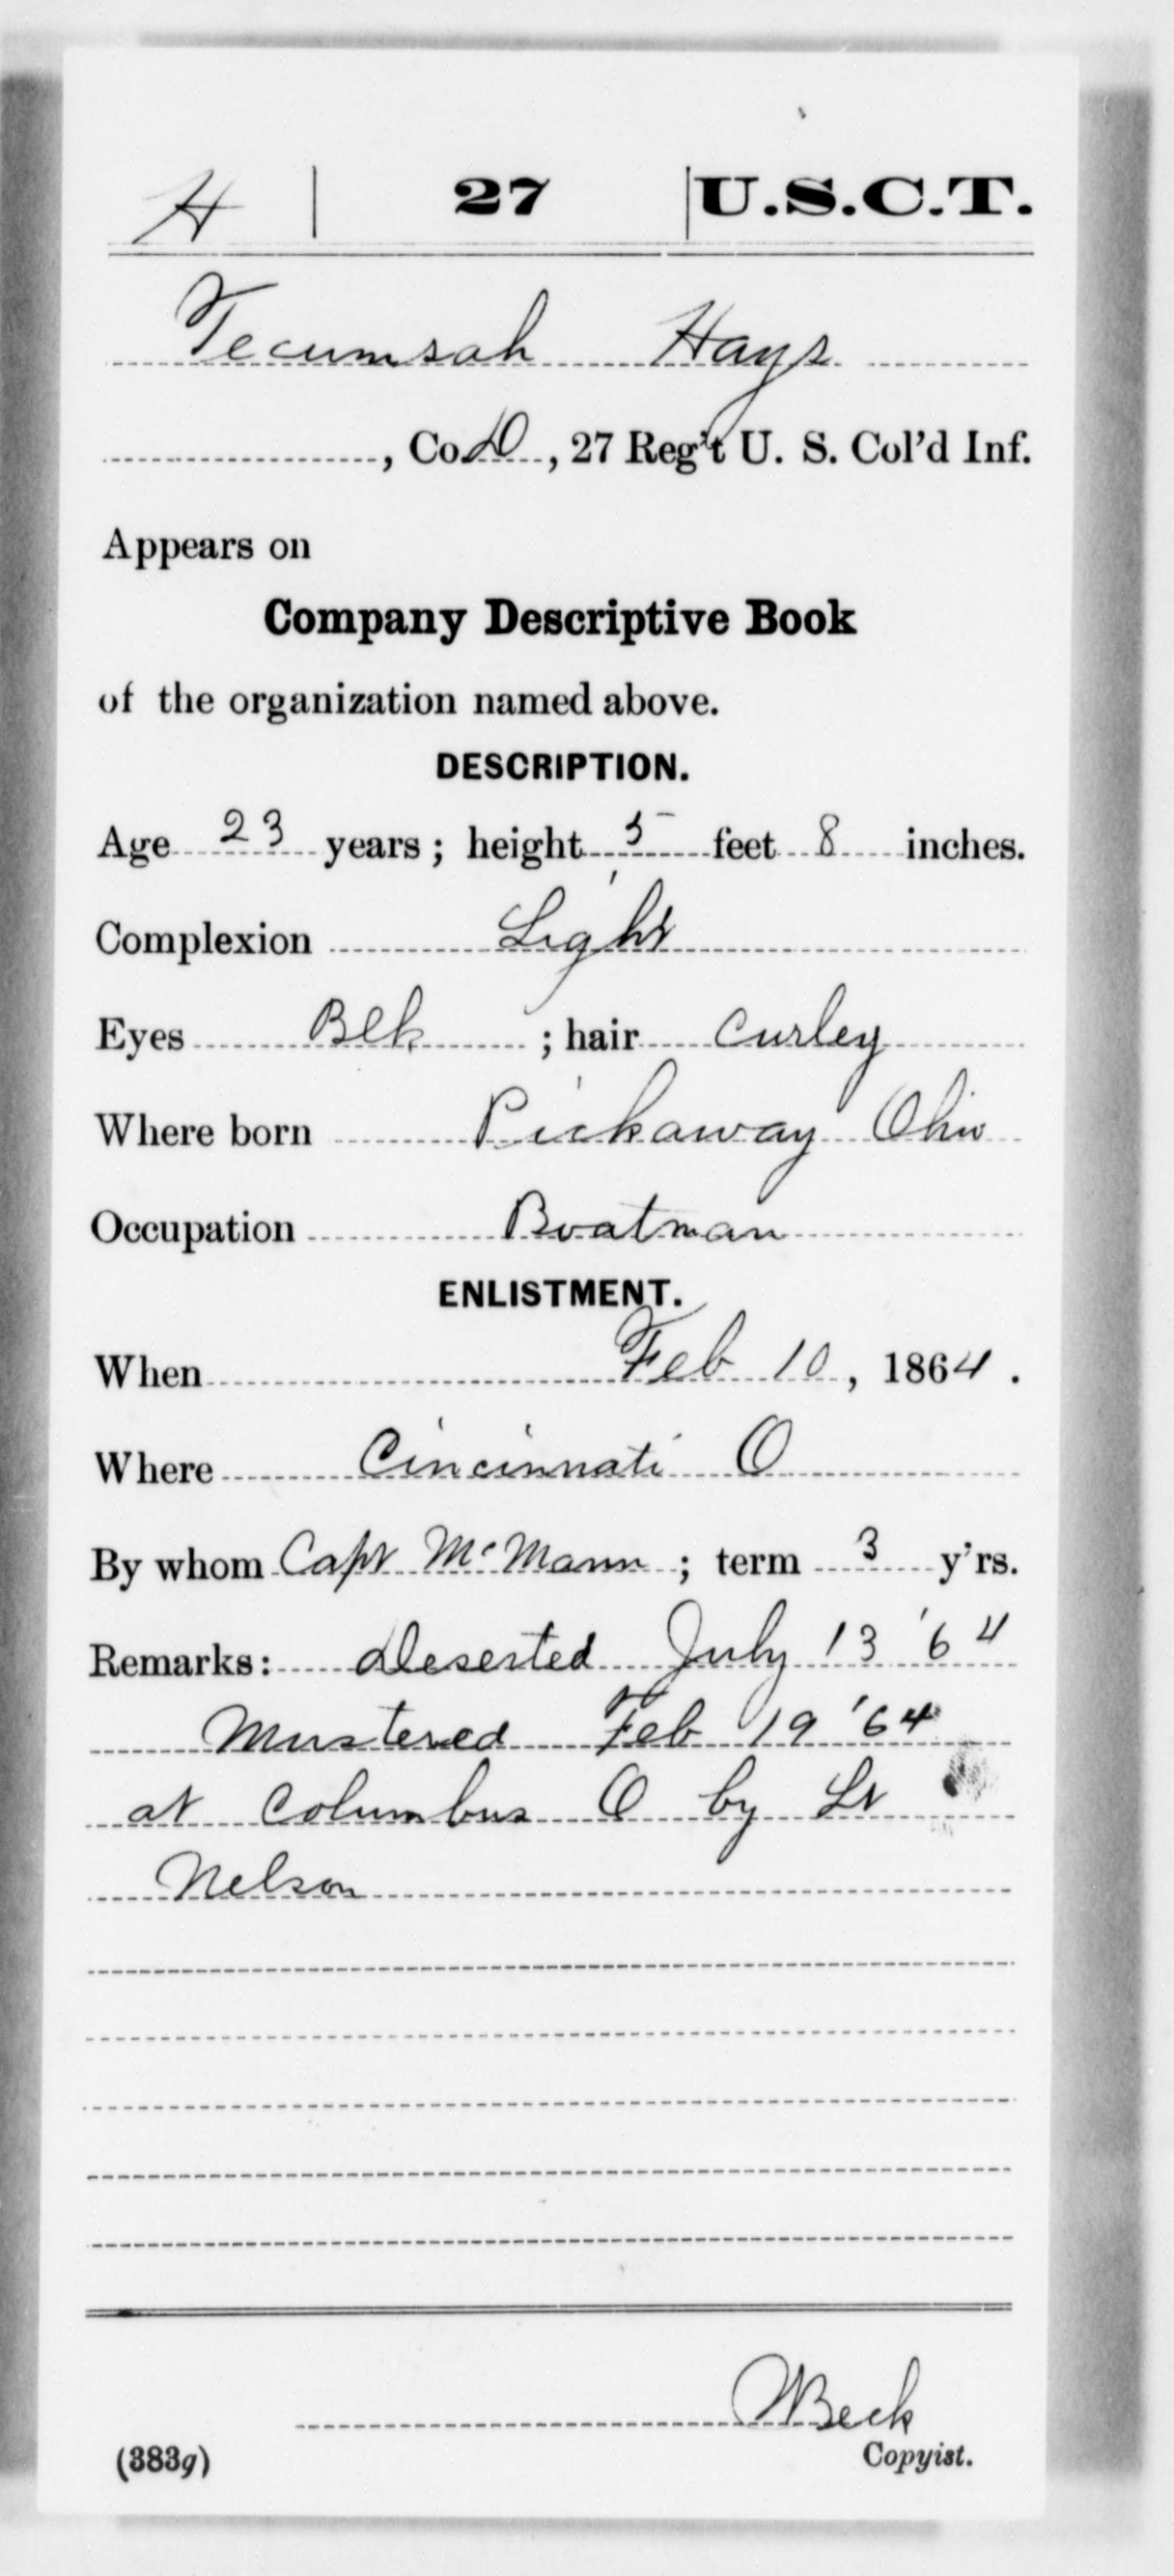 H | 27 | U.S.C.T.
Tecumsah Hays
, Co. D, 27 Reg't U. S. Col'd Inf.
Appears on
Company Descriptive Book
of the organization named above.
DESCRIPTION.
Age 23 years; height 5 feet 8 inches.
Complexion Light
Eyes Blk; hair Curley
Where born Pickaway Ohio
Occupation Boatman
ENLISTMENT.
When Feb 10, 1864.
Where Cincinnati O
By whom Capt McMann; term 3 y'rs.
Remarks: Deserted July 13 '64
Mustered Feb 19 '64
at Columbus O by Lt
Nelson
Beck
(383g) Copyist.